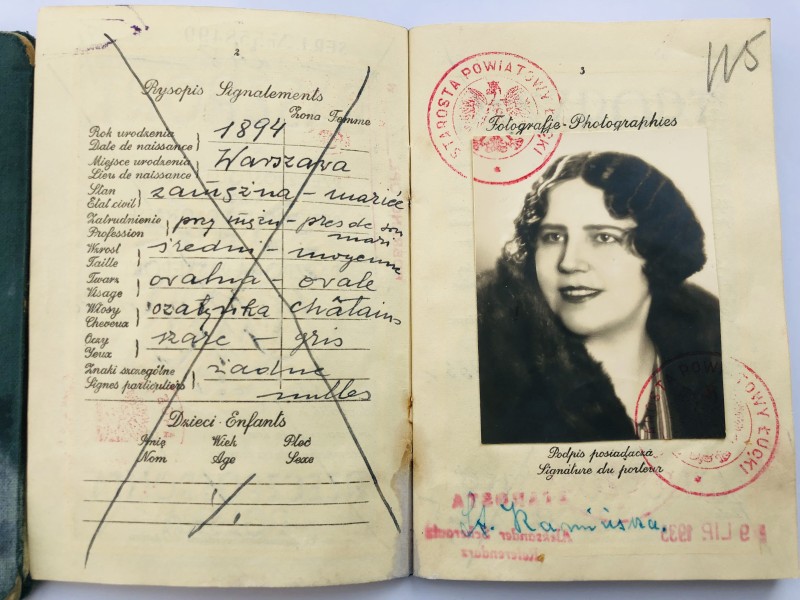 2
Rysopis Signalements
Żona Femme
Rok urodzenia
Date de naissance
1894
Miejsce urodzenia
Lieu de naissance
Warszawa
Stan
Etat civil
zamężna - mariée
Zatrudnienie
Profession
przy mężu - près de son
mari
Wzrost
Taille
średni - moyenne
Twarz
Visage
owalna ovale
Włosy
Cheveux
szatynka châtains
Oczy
Yeux
szare - gris
Znaki szczególne
Signes particuliers
żadne
nulles
Dzieci - Enfants
Imię Wiek Płeć
Nom Age Sexe
3
STAROSTA POWIATOWY ŁUCKI
Fotografje - Photographies
STAROSTA POWIATOWY ŁUCKI
Podpis posiadacza
Signature du porteur
STAROSTA
St. Kamińska.
Aleksander
Referendarz